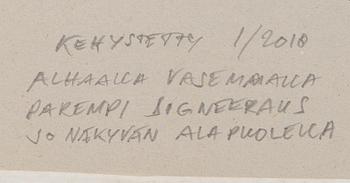 KEHYSTETTY 1/2010
ALHAALLA VASEMMALLA
PAREMPI SIGNEERAUS
JO NÄKYVÄN ALAPUOLELLA